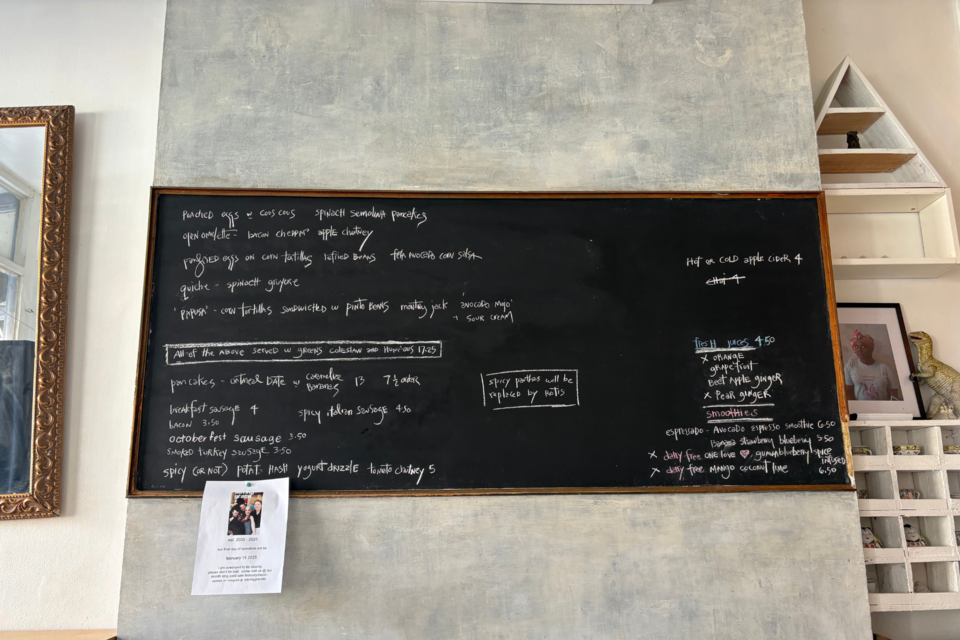 poached eggs w cous cous spinach semolina pancakes
open omelette - bacon cheddar apple chutney
poached eggs on corn tortillas refried beans feta avocado corn salsa
quiche - spinach gruyere
'PAPUSA' - corn tortillas sandwiched w pinto beans monterey jack 'avocado mojo'
+ sour cream
All of the above served w greens coleslaw and 17.25
pancakes - oatmeal DATE w caramelize bananas 13 7 1/2 order
breakfast sausage 4
spicy italian sausage 4.50
bacon 3.50
octoberfest sausage 3.50
smoked turkey sausage 3.50
spicy (or not) potato hash yogurt drizzle tomato chutney 5
spicy will be
replaced by
Hot or cold apple cider 4
chai 4
fresh juices 4.50
x orange
grapefruit
Beet apple ginger
x Pear ginger
smoothies
espressado - Avocado espresso smoothie 6.50
strawberry blueberry 5.50
x dairy free one love ♥
x dairy free mango coconut lime 6.50
est. 2002 - 2025
our final day of operations will be
february 15 2025